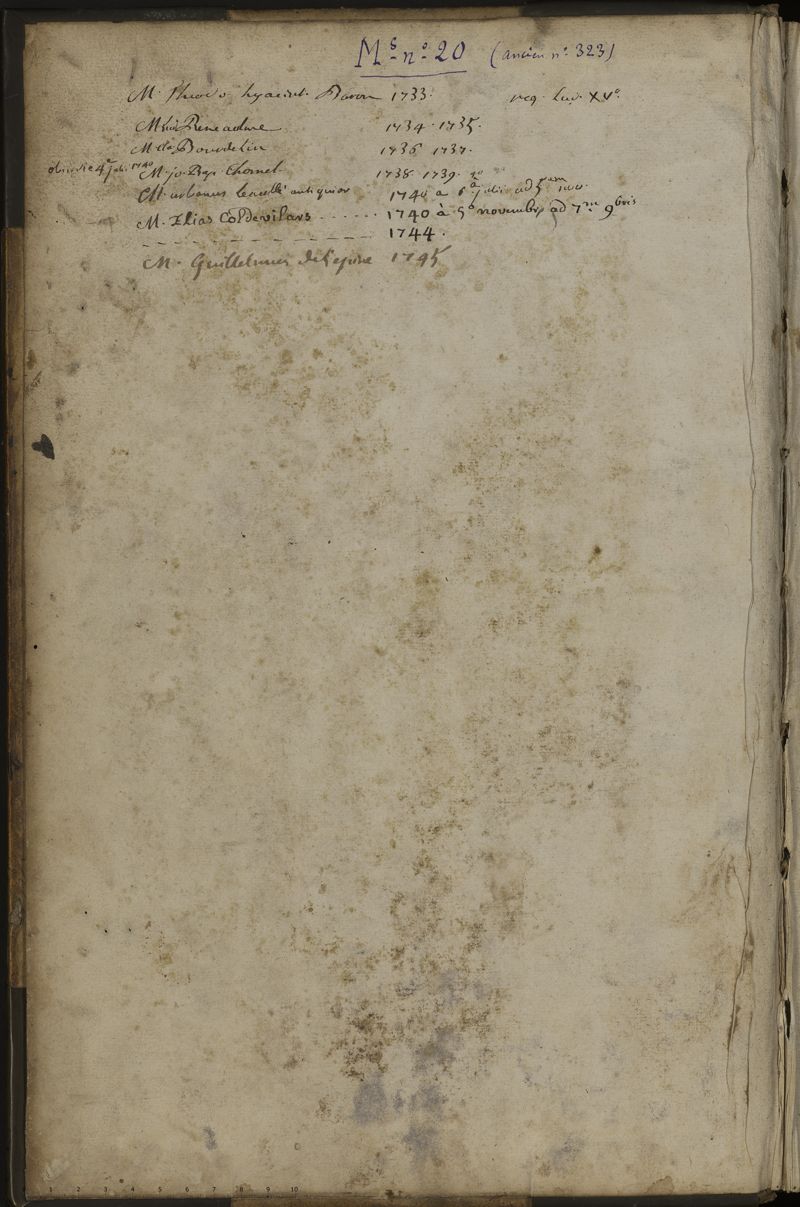 Ms. n° 20 (ancien n° 323)
M. Theodo. hyacint. Baron 1733. reg. Lud. XV°.
M. Rene 1734. 1735.
M. Bourdelin 1736 1737.
obiit die 4a 1740 M. jo. Bap. Chomel 1738. 1739.
M. urbanus leaulté antiquior 1740 a 6a julii ad 5am nov.
M. Elias Col Devilars - - - - - 1740 à 5a novembris ad 7m 9bris
- - - - - - - - - - 1744.
M. Guillelmus De l'epine 1745
1 2 3 4 5 6 7 8 9 10